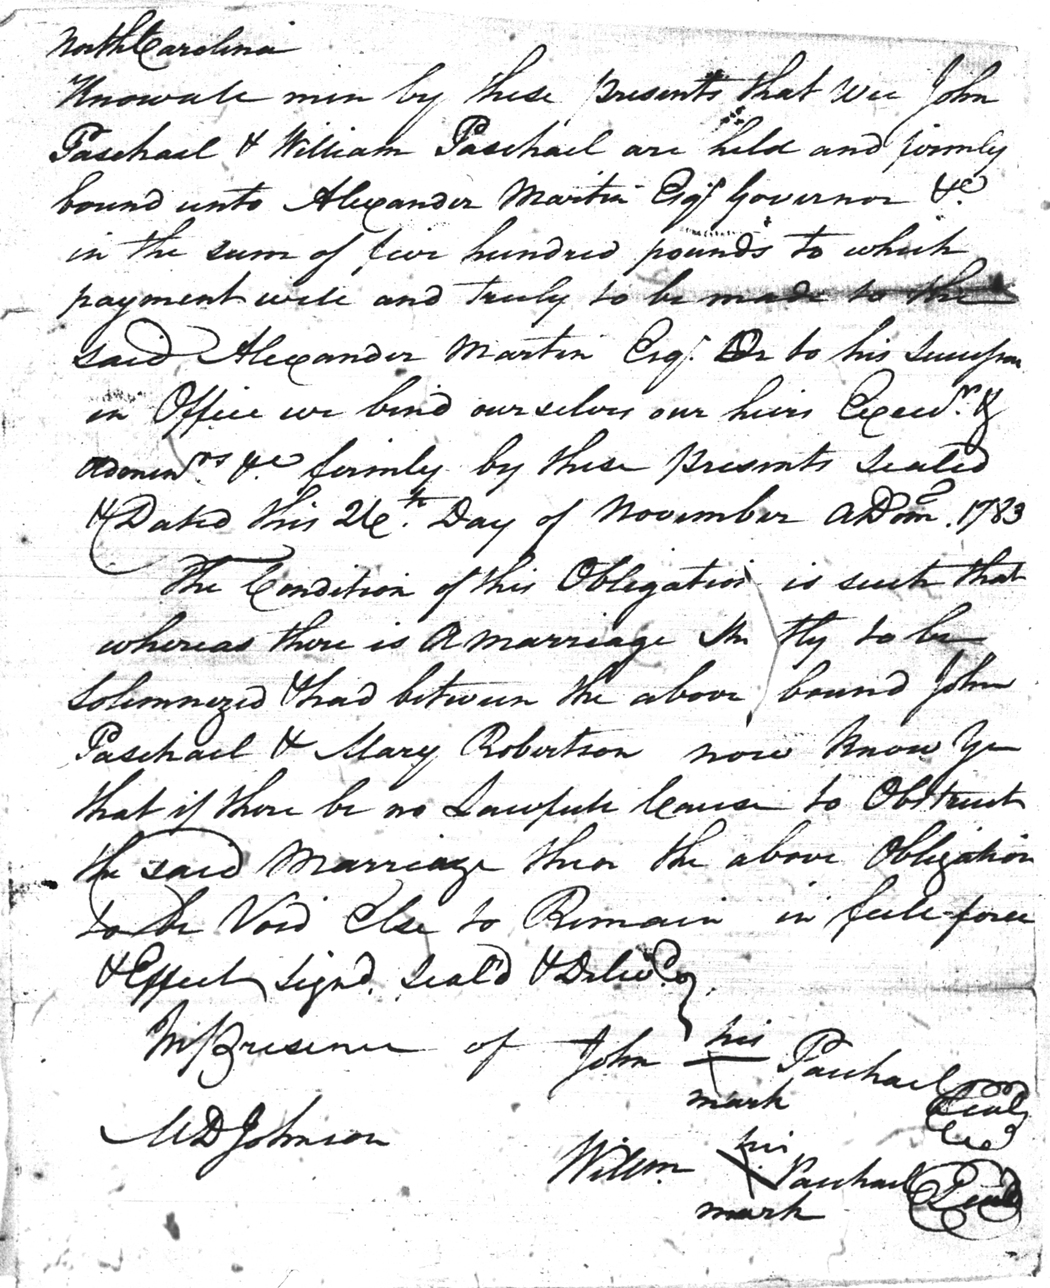 North Carolina
Know all men by these presents that wee John
Paschael & William Paschael are held and firmly
bound unto Alexander Martin Esqr Governor &c
in the sum of five hundred pounds to which
payment well and truly to be made to the
said Alexander Martin Esqr. Or to his Successor
in Office we bind ourselves our heirs Execurs. &
Admenrs. &c firmly by these presents sealed
& Dated this 26th. Day of November ADom. 1783
The Condition of this Obligation is such that
whereas there is A marriage tly to be
Solemnezed & had between the above bound John
Paschael & Mary Robertson now know Ye
that if there be no Lawfull Cause to Obstruct
the said Marriage then the above Obligation
to be Void Else to Remain in full force
& Effect Signd. Seal'd & Delivd.
In Presence of John his Paschael Seal
mark
MD Johnson
Willm. his Paschael Seal
mark